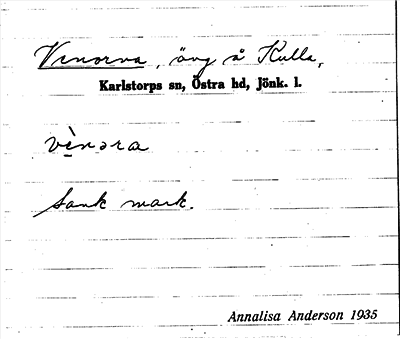 Venorna, äng å Kulla,
Karlstorps sn, Östra hd, Jönk. l.
vè̱nɔra
Sank mark.
Annalisa Anderson 1935